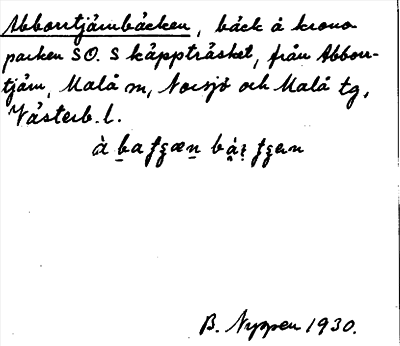 Abborrtjärnbäcken, bäck å krono
parken SO. S Käppträsket, från Abborr-
tjärn, Malå sn, Norsjö och Malå tg,
Västerb. l.
B. Nyppen 1930.